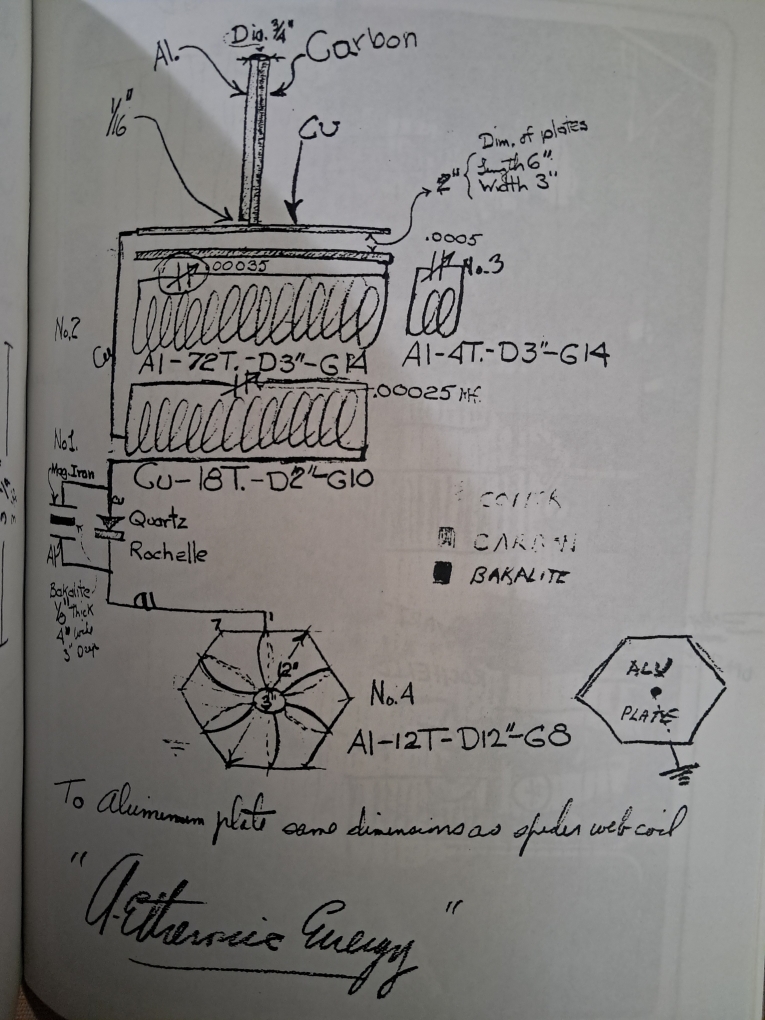 Dia. 3/4"
Al.
Carbon
1/16"
Cu
Dim. of plates
2"
Length 6"
Width 3"
.0005
.00035
No.3
No.2
Cu
Al-72T.-D3"-G14
Al-4T.-D3"-G14
.00025 Mf.
No1.
Cu-18T.-D2"-G10
Mag. Iron
Quartz
Rochelle
Al
CARBON
BAKALITE
Bakalite
1/8" Thick
4" wide
3" Deep
12"
3"
No.4
Al-12T-D12"-G8
ALU
PLATE
To aluminum plate same dimensions as spider web coil
"A-Etheronic Energy"